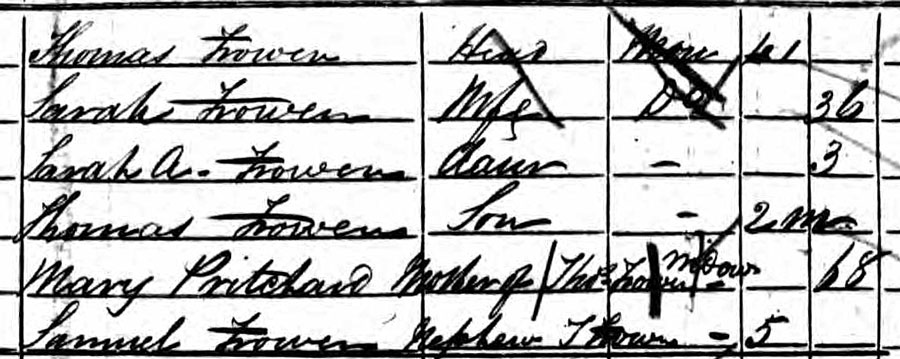 Thomas Trowen Head Marr 41
Sarah Trowen Wife Do 36
Sarah A. Trowen Daur - 3
Thomas Trowen Son - 2 m
Mary Pritchard Mother of Thos Trowen Widow - 68
Samuel Trowen Nephew T Trowen - 5